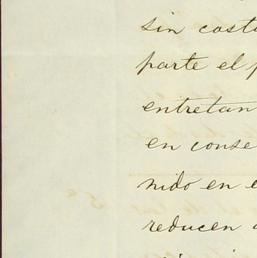 sin cost
parte el p
entretan
en conse
nido en e
reducen